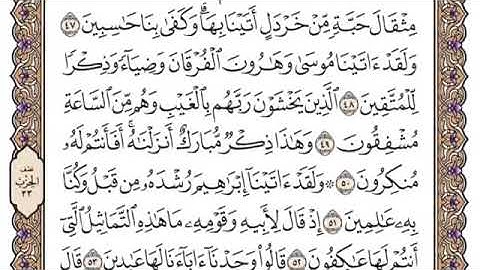 مِثْقَالَ حَبَّةٍ مِّنْ خَرْدَلٍ أَتَيْنَا بِهَاۗ وَكَفَىٰ بِنَا حَٰسِبِينَ ٤٧
وَلَقَدْ ءَاتَيْنَا مُوسَىٰ وَهَٰرُونَ ٱلْفُرْقَانَ وَضِيَآءً وَذِكْرًا
لِّلْمُتَّقِينَ ٤٨ ٱلَّذِينَ يَخْشَوْنَ رَبَّهُم بِٱلْغَيْبِ وَهُم مِّنَ ٱلسَّاعَةِ
مُشْفِقُونَ ٤٩ وَهَٰذَا ذِكْرٌ مُّبَارَكٌ أَنزَلْنَٰهُۚ أَفَأَنتُمْ لَهُۥ
مُنكِرُونَ ٥٠ ۞ وَلَقَدْ ءَاتَيْنَآ إِبْرَٰهِيمَ رُشْدَهُۥ مِن قَبْلُ وَكُنَّا
بِهِۦ عَٰلِمِينَ ٥١ إِذْ قَالَ لِأَبِيهِ وَقَوْمِهِۦ مَا هَٰذِهِ ٱلتَّمَاثِيلُ ٱلَّتِىٓ
أَنتُمْ لَهَا عَٰكِفُونَ ٥٢ قَالُوا۟ وَجَدْنَآ ءَابَآءَنَا لَهَا عَٰبِدِينَ ٥٣ قَالَ
نصف
الحزب
٣٣